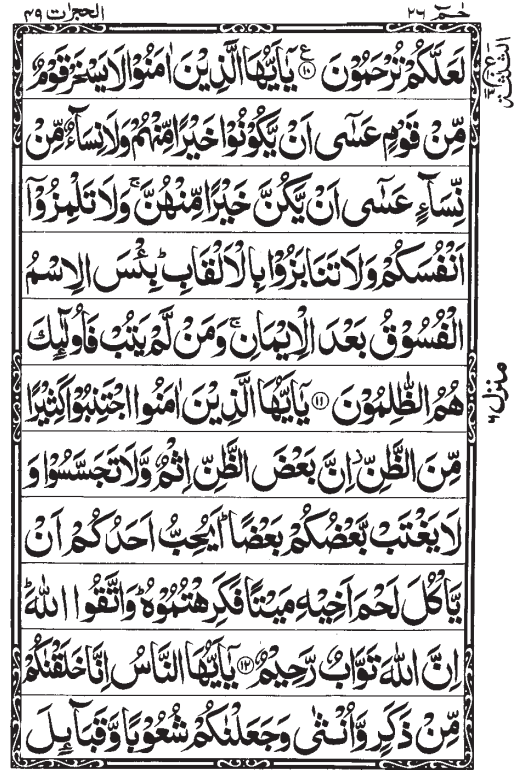 الحجرات ٤٩
حٰمٓ ٢٦
لَعَلَّكُمْ تُرْحَمُوْنَ ۧ۝۱۰ يٰۤاَيُّهَا الَّذِيْنَ اٰمَنُوْا لَا يَسْخَرْ قَوْمٌ
مِّنْ قَوْمٍ عَسٰۤى اَنْ يَّكُوْنُوْا خَيْرًا مِّنْهُمْ وَلَا نِسَآءٌ مِّنْ
نِّسَآءٍ عَسٰۤى اَنْ يَّكُنَّ خَيْرًا مِّنْهُنَّ ۚ وَلَا تَلْمِزُوْۤا
اَنْفُسَكُمْ وَلَا تَنَابَزُوْا بِالْاَلْقَابِ ؕ بِئْسَ الِاسْمُ
الْفُسُوْقُ بَعْدَ الْاِيْمَانِ ۚ وَمَنْ لَّمْ يَتُبْ فَاُولٰٓئِكَ
هُمُ الظّٰلِمُوْنَ ۝۱۱ يٰۤاَيُّهَا الَّذِيْنَ اٰمَنُوا اجْتَنِبُوْا كَثِيْرًا
مِّنَ الظَّنِّ ؗ اِنَّ بَعْضَ الظَّنِّ اِثْمٌ وَّلَا تَجَسَّسُوْا وَ
لَا يَغْتَبْ بَّعْضُكُمْ بَعْضًا ؕ اَيُحِبُّ اَحَدُكُمْ اَنْ
يَّاْكُلَ لَحْمَ اَخِيْهِ مَيْتًا فَكَرِهْتُمُوْهُ ؕ وَاتَّقُوا اللّٰهَ ؕ
اِنَّ اللّٰهَ تَوَّابٌ رَّحِيْمٌ ۝۱۲ يٰۤاَيُّهَا النَّاسُ اِنَّا خَلَقْنٰكُمْ
مِّنْ ذَكَرٍ وَّاُنْثٰى وَجَعَلْنٰكُمْ شُعُوْبًا وَّقَبَآئِلَ
الثلثة
منزل ٦